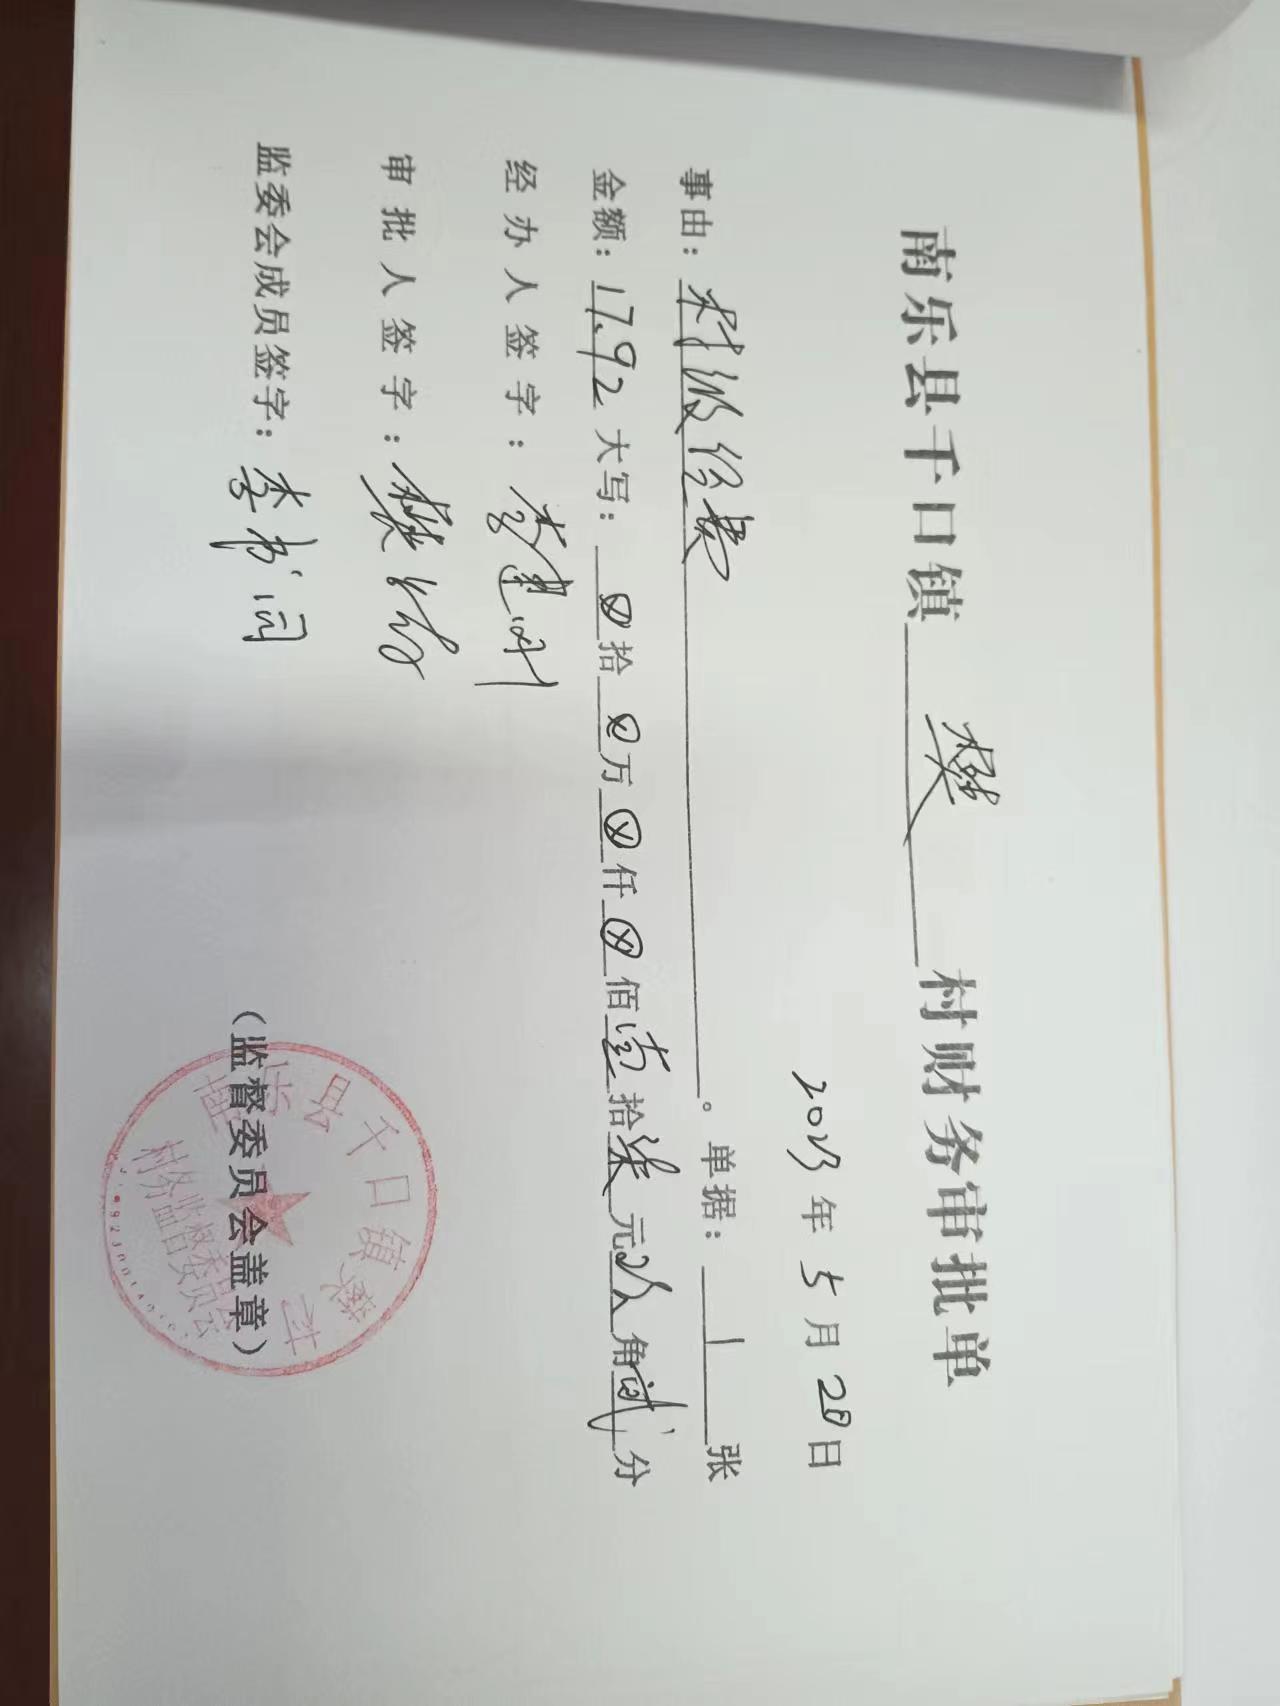 南乐县千口镇 樊 村财务审批单
2023年5月28日
事由：村级经费。单据：1张
金额：17.92大写：⊗拾⊗万⊗仟⊗佰壹拾柒元玖角贰分
经办人签字：李建
审批人签字：樊
监委会成员签字：李书闫
（监督委员会盖章）
南乐县千口镇樊村
村务监督委员会